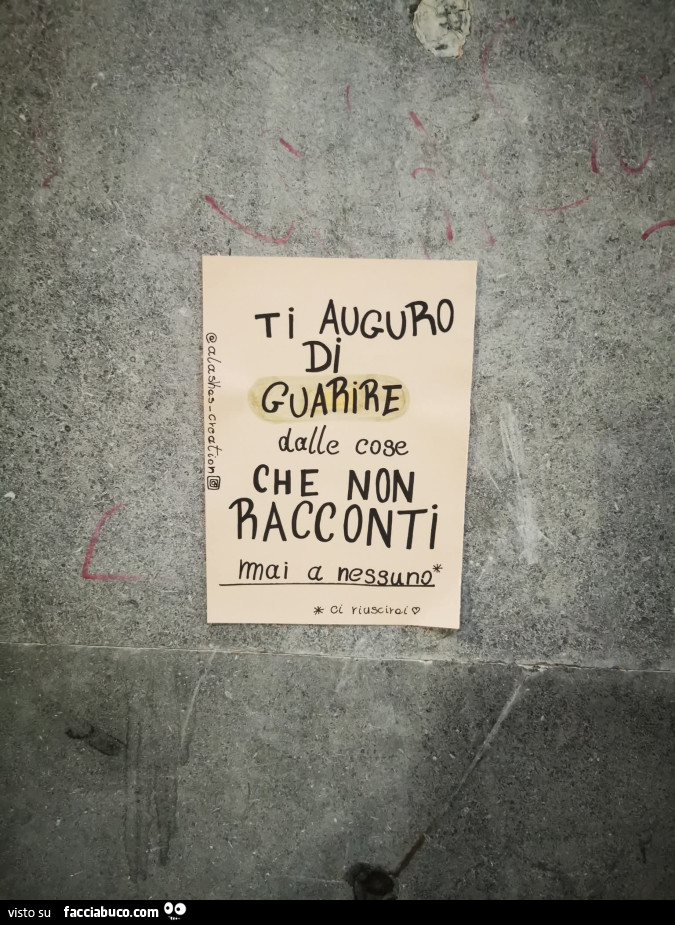 Ti AUGURO
Di
GUARiRE
dalle cose
CHE NON
RACCONTi
mai a nessuno*
* ci riuscirai ♡
@alaskas_creation
visto su facciabuco.com